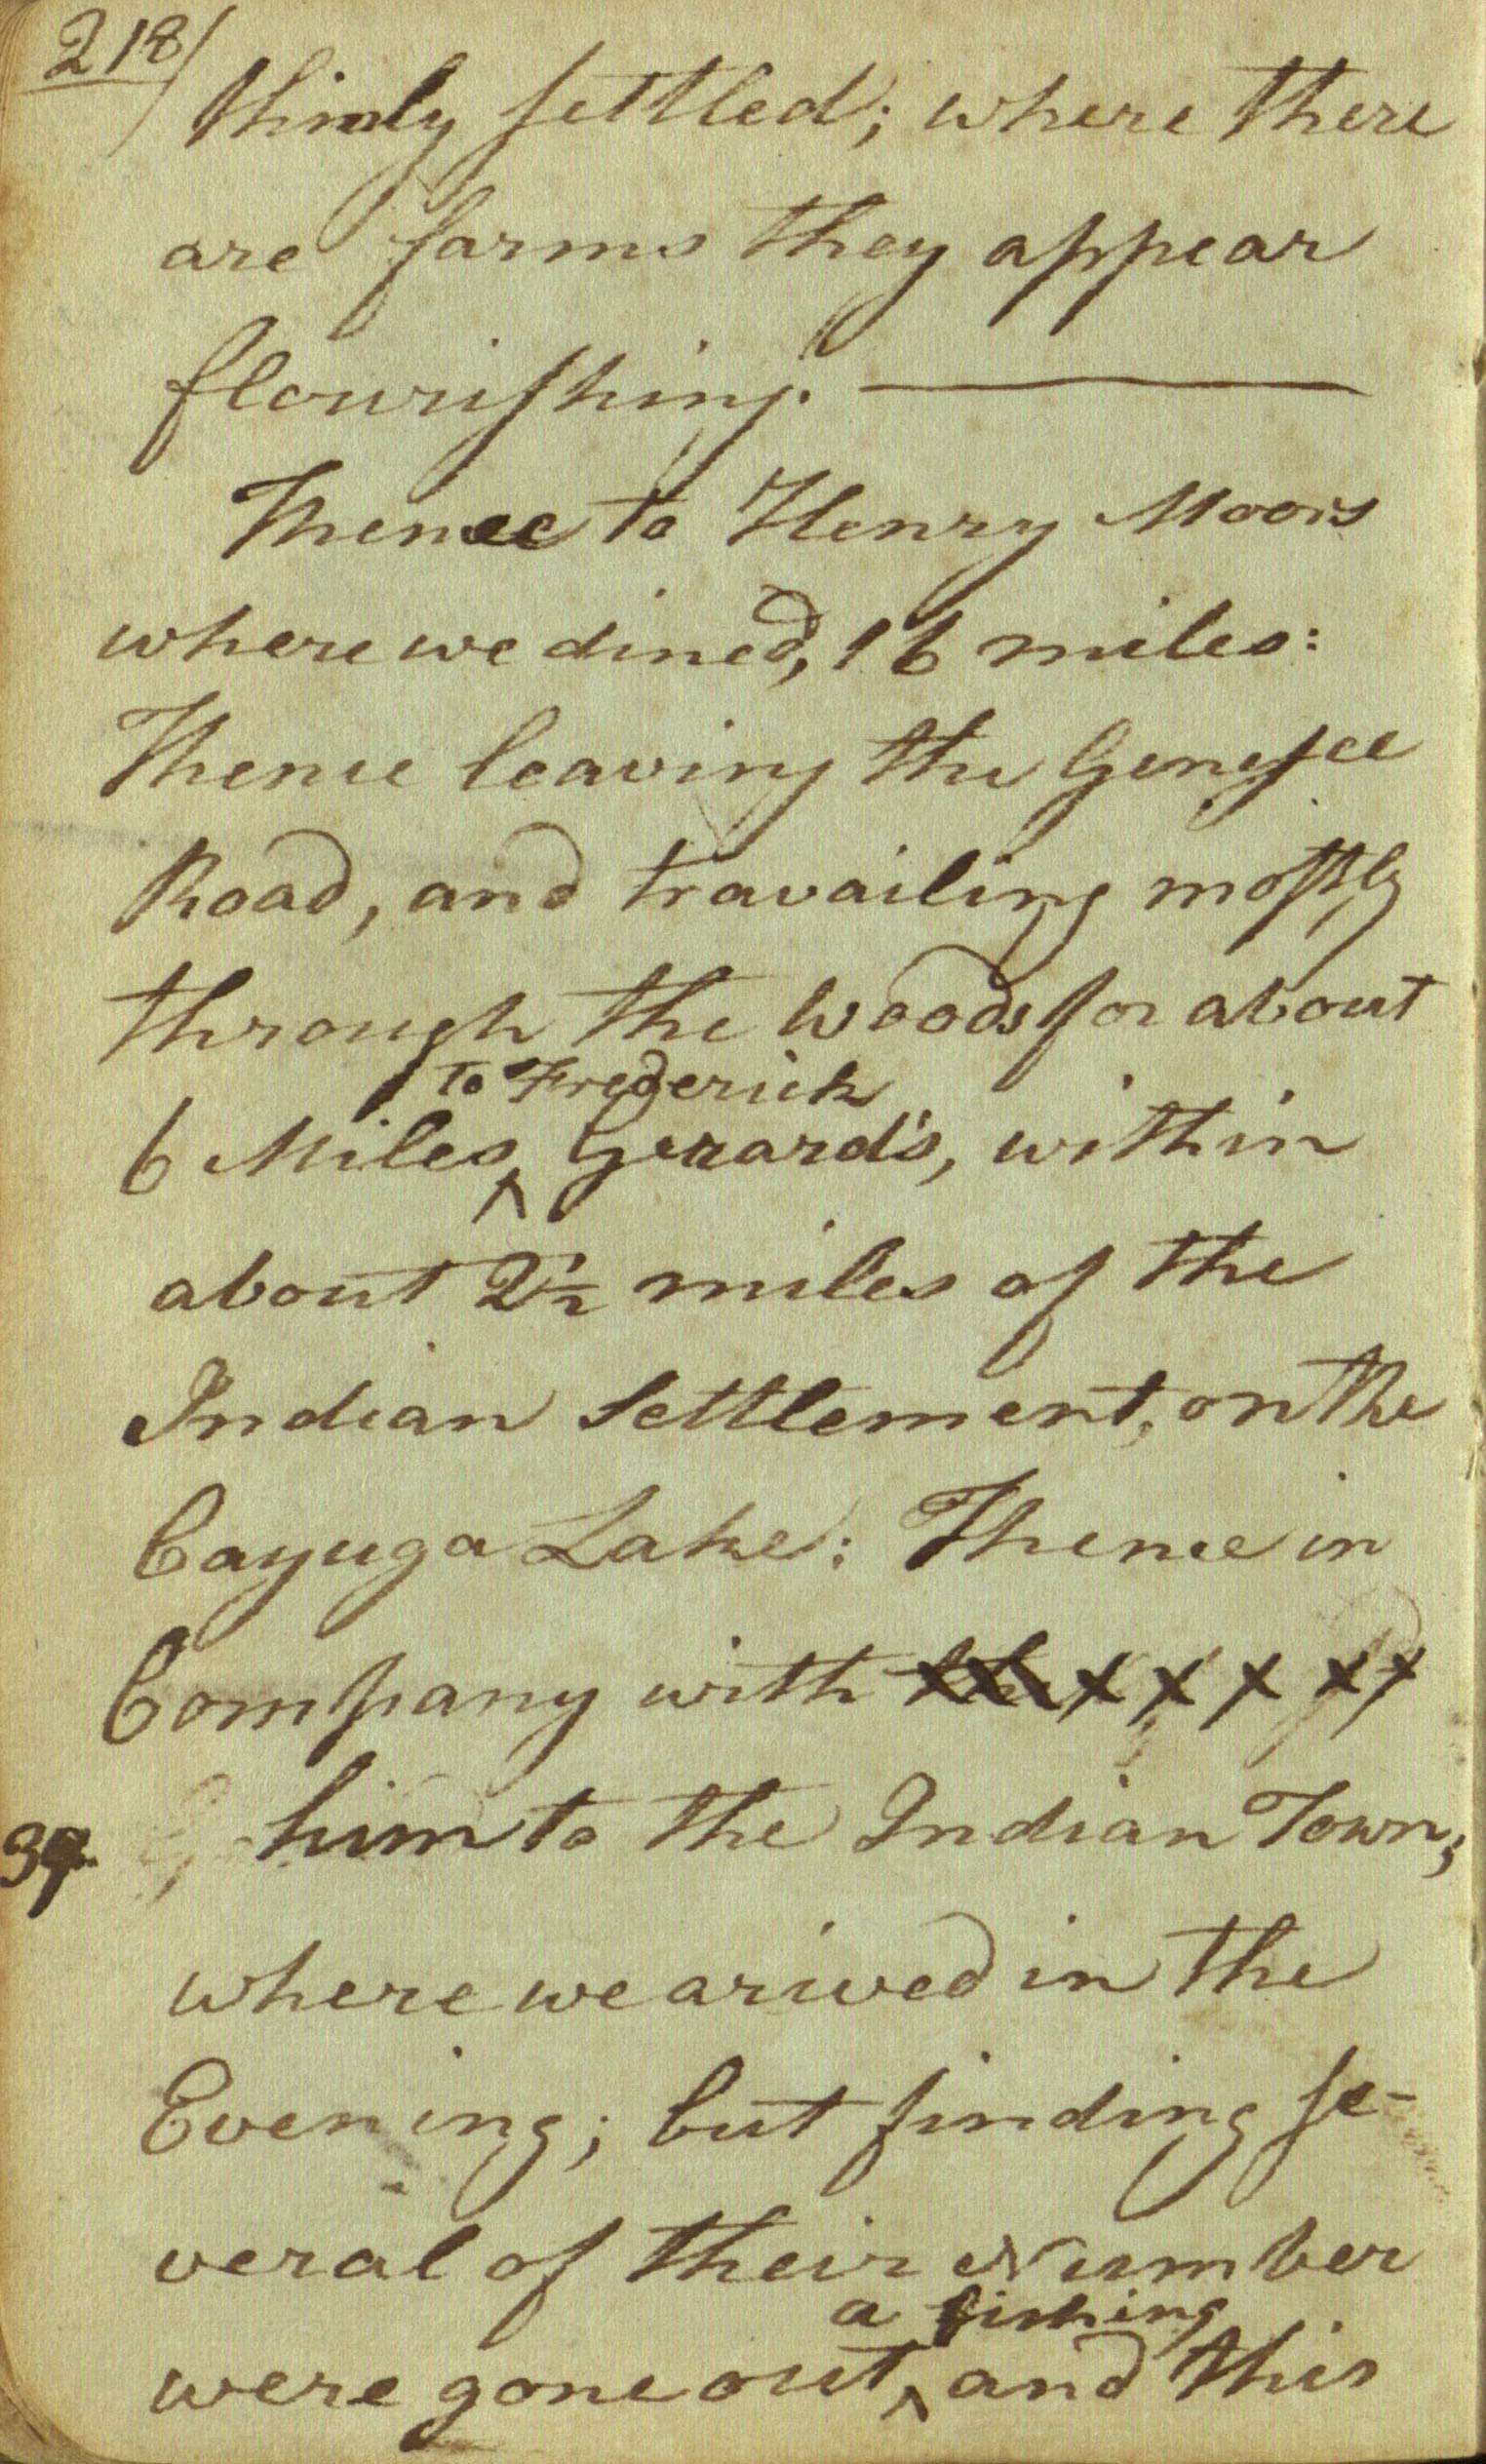 218/
thinly settled; where there
are farms they appear
flourishing.
Thence to Henry Moors
where we dined, 16 miles:
Thence leaving the Genesee
Road, and travailing mostly
through the woods for about
to Frederick
6 Miles ^ Gerard's, within
about 2½ miles of the
Indian Settlement, on the
Cayuga Lake: Thence in
Company with x x x x x
39. him to the Indian Town;
where we arived in the
Evening; but finding se-
veral of their Number
a fishing
were gone out, ^ and this